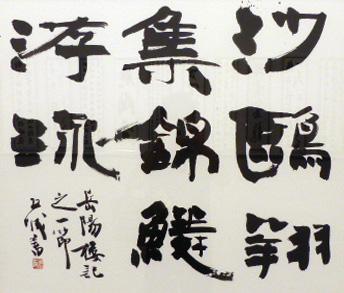 沙鷗翔
集錦鱗
游泳
岳陽樓記
之一節